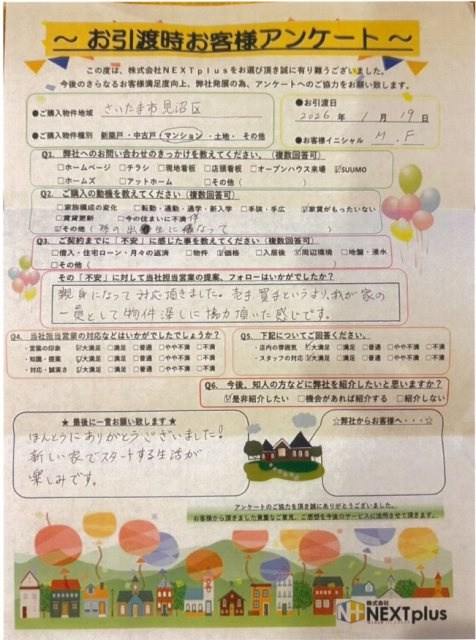 ～ お引渡時お客様アンケート ～
この度は、株式会社NEXTplusをお選び頂き誠に有り難うございました。
今後のさらなるお客様満足度向上、弊社発展の為、アンケートへのご協力をお願い致します。
●ご購入物件地域 さいたま市見沼区
●ご購入物件種別 新築戸・中古戸・マンション・土地・その他
●お引渡日
2026年 1月 19日
●お客様イニシャル M.F
Q1. 弊社へのお問い合わせのきっかけを教えてください。（複数回答可）
□ホームページ □チラシ □現地看板 □店頭看板 □オープンハウス来場 ☑SUUMO
□ホームズ □アットホーム □その他（ ）
Q2. ご購入の動機を教えてください（複数回答可）
□家族構成の変化 □転勤・通勤・通学・新入学 □手狭・手広 ☑家賃がもったいない
□賃貸更新 □今の住まいに不満
☑その他（孫の出生に備なって ）
Q3. ご契約までに「不安」に感じた事を教えてください（複数回答可）
□借入・住宅ローン・月々の返済 □物件 ☑価格 □入居後 ☑周辺環境 □地盤・浸水
□その他（ ）
その「不安」に対して当社担当営業の提案、フォローはいかがでしたか？
親身になって対応頂きました。売手、買手というより、我が家の
一員として物件探しに協力頂いた感じです。
Q4. 当社担当営業の対応などはいかがでしたでしょうか？
・営業の印象 ☑大満足 □満足 □普通 □やや不満 □不満
・知識・提案 ☑大満足 □満足 □普通 □やや不満 □不満
・対応・誠実さ ☑大満足 □満足 □普通 □やや不満 □不満
Q5. 下記についてご回答ください。
・店内の雰囲気 ☑大満足 □満足 □普通 □やや不満 □不満
・スタッフの対応 ☑大満足 □満足 □普通 □やや不満 □不満
Q6. 今後、知人の方などに弊社を紹介したいと思いますか？
☑是非紹介したい □機会があれば紹介する □紹介しない
★ 最後に一言お願い致します ★
ほんとうにありがとうございました!
新しい家でスタートする生活が
楽しみです。
☆弊社からお客様へ・・・☆
アンケートのご協力を頂き誠にありがとうございました。
お客様から頂きました貴重なご意見、ご感想を今後のサービスに活用させて頂きます。
株式会社
NEXTplus